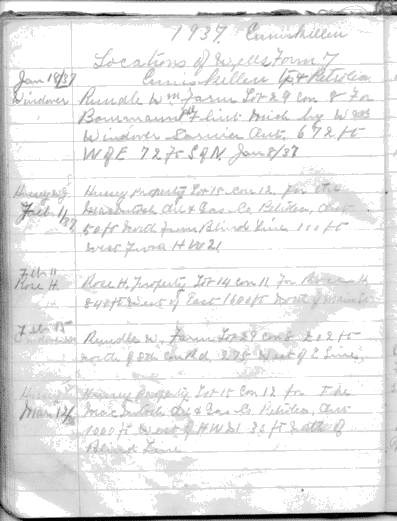 1937. Enniskillen
Locations of Wells Form 7
Jan 18/37 Enniskillen & Petrolia
Windover Rundle Wm Farm Lot 29 Con 8 For
Flint Mich by
Windover Sarnia Ont. 672 ft
W of E 72 ft S of N. Jan 8/37
Huey Property Lot 15 Con 12 for the
Feb 1/37 MacIntosh Oil & Gas Co Petrolia, Ont
50 ft North from Blind Line 100 ft
West from HW 21
Feb 11
Rose H. Rose H. Property Lot 14 Con 11 For Rose H
840 ft West of East 1600 ft North of
Feb 15
Windover Rundle W. Farm Lot 29 Con 8 202 ft
north of 8th Con Rd 275 West of E Line
Huey Property Lot 15 Con 12 for The
Mar 12 MacIntosh Oil & Gas Co Petrolia, Ont
1000 ft West of HW 21 30 ft North of
Blind Line